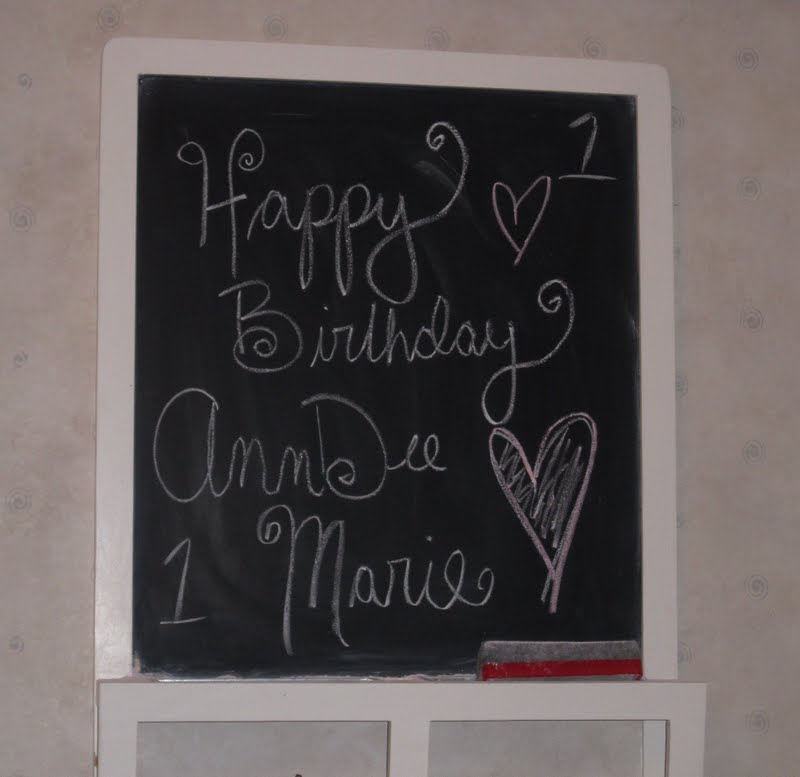 Happy 1
Birthday
AnnDee
1 Marie